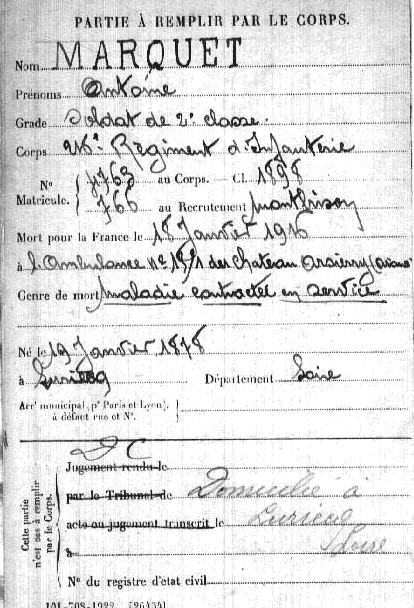 PARTIE À REMPLIR PAR LE CORPS.
Nom MARQUET
Prénoms Antoine
Grade Soldat de 2e classe
Corps 216e Régiment d'Infanterie
No Matricule. { 4763 au Corps. — Cl. 1898
766 au Recrutement Montbrison
Mort pour la France le 18 Janvier 1916
à l'Ambulance No 15/1 des Chateau
Genre de mort maladie contractée en service
Né le 19 Janvier 1878
à Département Loire
Arrt municipal (pr Paris et Lyon), à défaut rue et No. }
DC
Cette partie n'est pas à remplir par le Corps.
Jugement rendu le
par le Tribunal de Domicilié à
acte ou jugement transcrit le
à Loire
No du registre d'état civil
101-708-1922. [26434]